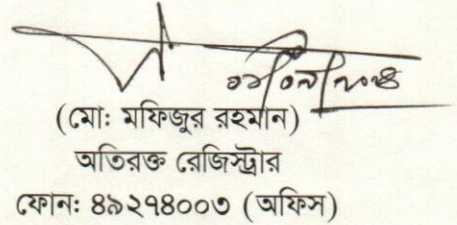 (মো: মফিজুর রহমান)
অতিরক্ত রেজিস্ট্রার
ফোন: ৪৯২৭৪০০৩ (অফিস)